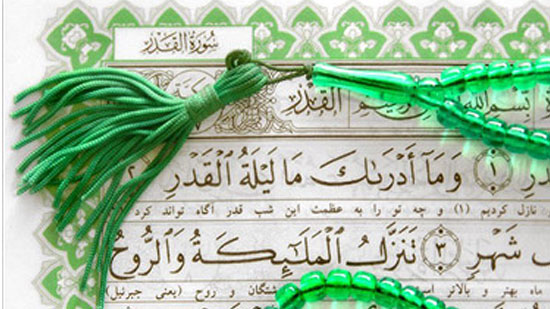 سُورَةُ الْقَدْرِ
بِسْمِ اللهِ
الْقَدْرِ
دْرِ ۝١ وَمَآ أَدْرَىٰكَ مَا لَيْلَةُ ٱلْقَدْرِ ۝٢
نازل کردیم (۱) و چه تو را به عظمت این شب قدر آگاه تواند کرد
شَهْرٍ ۝٣ تَنَزَّلُ ٱلْمَلَٰٓئِكَةُ وَٱلرُّوحُ
ماه بهتر و بالاتر شتگان و روح (یعنی جبرئیل)